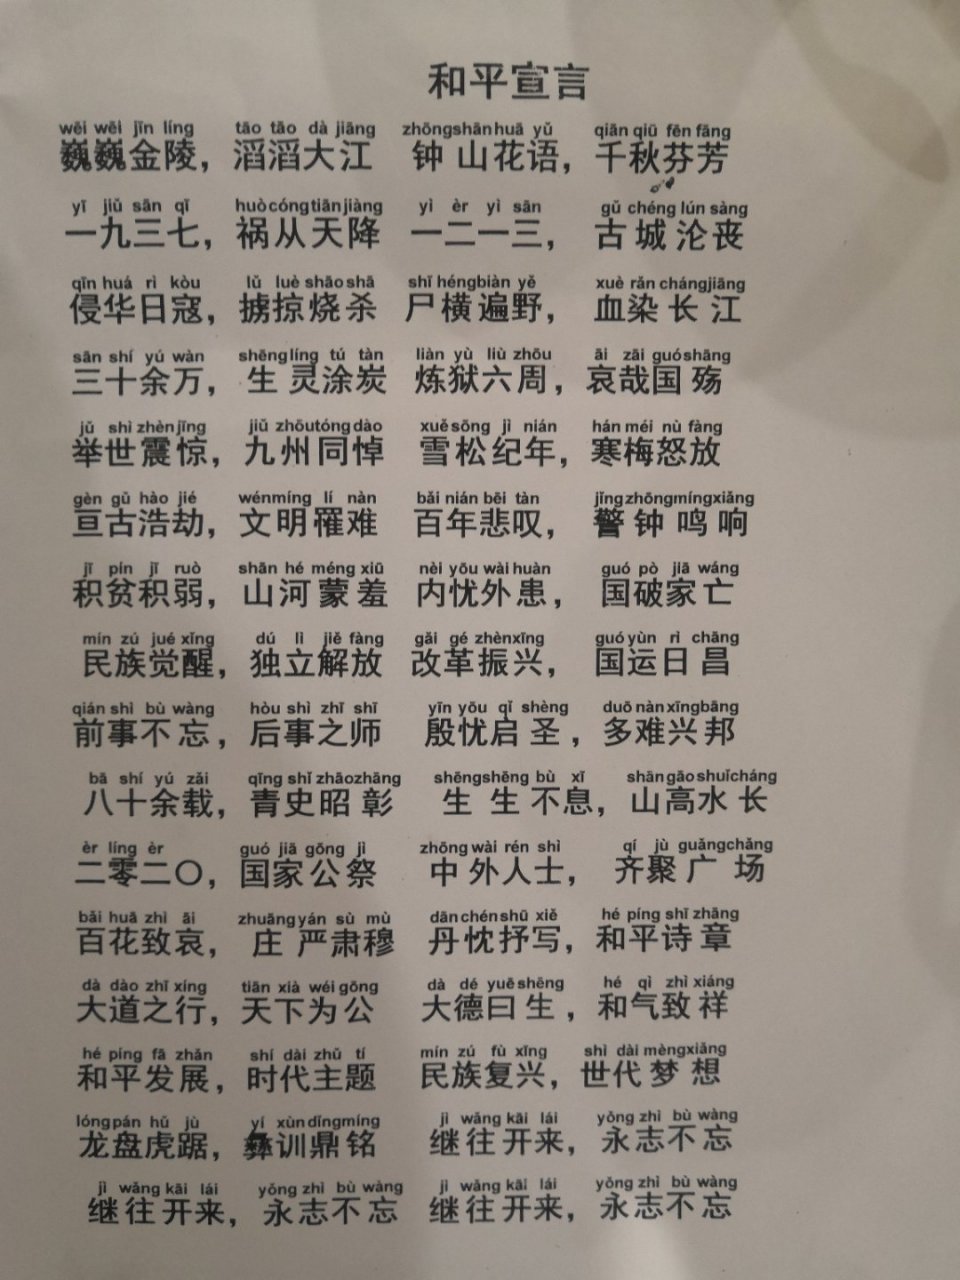 和平宣言
wēi wēi jīn líng tāo tāo dà jiāng zhōngshānhuā yǔ qiān qiū fēn fāng
巍巍金陵，滔滔大江 钟山花语，千秋芬芳
yī jiǔ sān qī huòcóngtiānjiàng yì èr yì sān gǔ chéng lún sàng
一九三七，祸从天降 一二一三，古城沦丧
qīn huá rì kòu lǔ luè shāoshā shī héngbiàn yě xuè rǎn chángjiāng
侵华日寇，掳掠烧杀 尸横遍野，血染长江
sān shí yú wàn shēnglíng tú tàn liàn yù liù zhōu āi zāi guóshāng
三十余万，生灵涂炭 炼狱六周，哀哉国殇
jǔ shì zhènjīng jiǔ zhōutóngdào xuěsōng jì nián hán méi nù fàng
举世震惊，九州同悼 雪松纪年，寒梅怒放
gèn gǔ hào jié wénmíng lí nàn bǎi nián bēi tàn jǐngzhōngmíngxiǎng
亘古浩劫，文明罹难 百年悲叹，警钟鸣响
jī pín jī ruò shān hé méng xiū nèi yōu wài huàn guó pò jiā wáng
积贫积弱，山河蒙羞 内忧外患，国破家亡
mín zú jué xǐng dú lì jiě fàng gǎi gé zhènxīng guó yùn rì chāng
民族觉醒，独立解放 改革振兴，国运日昌
qián shì bù wàng hòu shì zhī shī yīn yōu qǐ shèng duō nàn xīngbāng
前事不忘，后事之师 殷忧启圣，多难兴邦
bā shí yú zǎi qīng shǐ zhāozhāng shēngshēng bù xī shān gāo shuǐcháng
八十余载，青史昭彰 生生不息，山高水长
èr líng èr guó jiā gōng jì zhōng wài rén shì qí jù guǎngchǎng
二零二〇，国家公祭 中外人士，齐聚广场
bǎi huā zhì āi zhuāng yán sù mù dān chén shū xiě hé píng shī zhāng
百花致哀，庄严肃穆 丹忱抒写，和平诗章
dà dào zhī xíng tiān xià wéi gōng dà dé yuē shēng hé qì zhì xiáng
大道之行，天下为公 大德曰生，和气致祥
hé píng fā zhǎn shí dài zhǔ tí mín zú fù xīng shì dài mèngxiǎng
和平发展，时代主题 民族复兴，世代梦想
lóng pán hǔ jù yí xùn dǐngmíng jì wǎng kāi lái yǒng zhì bù wàng
龙盘虎踞，彝训鼎铭 继往开来，永志不忘
jì wǎng kāi lái yǒng zhì bù wàng jì wǎng kāi lái yǒng zhì bù wàng
继往开来，永志不忘 继往开来，永志不忘